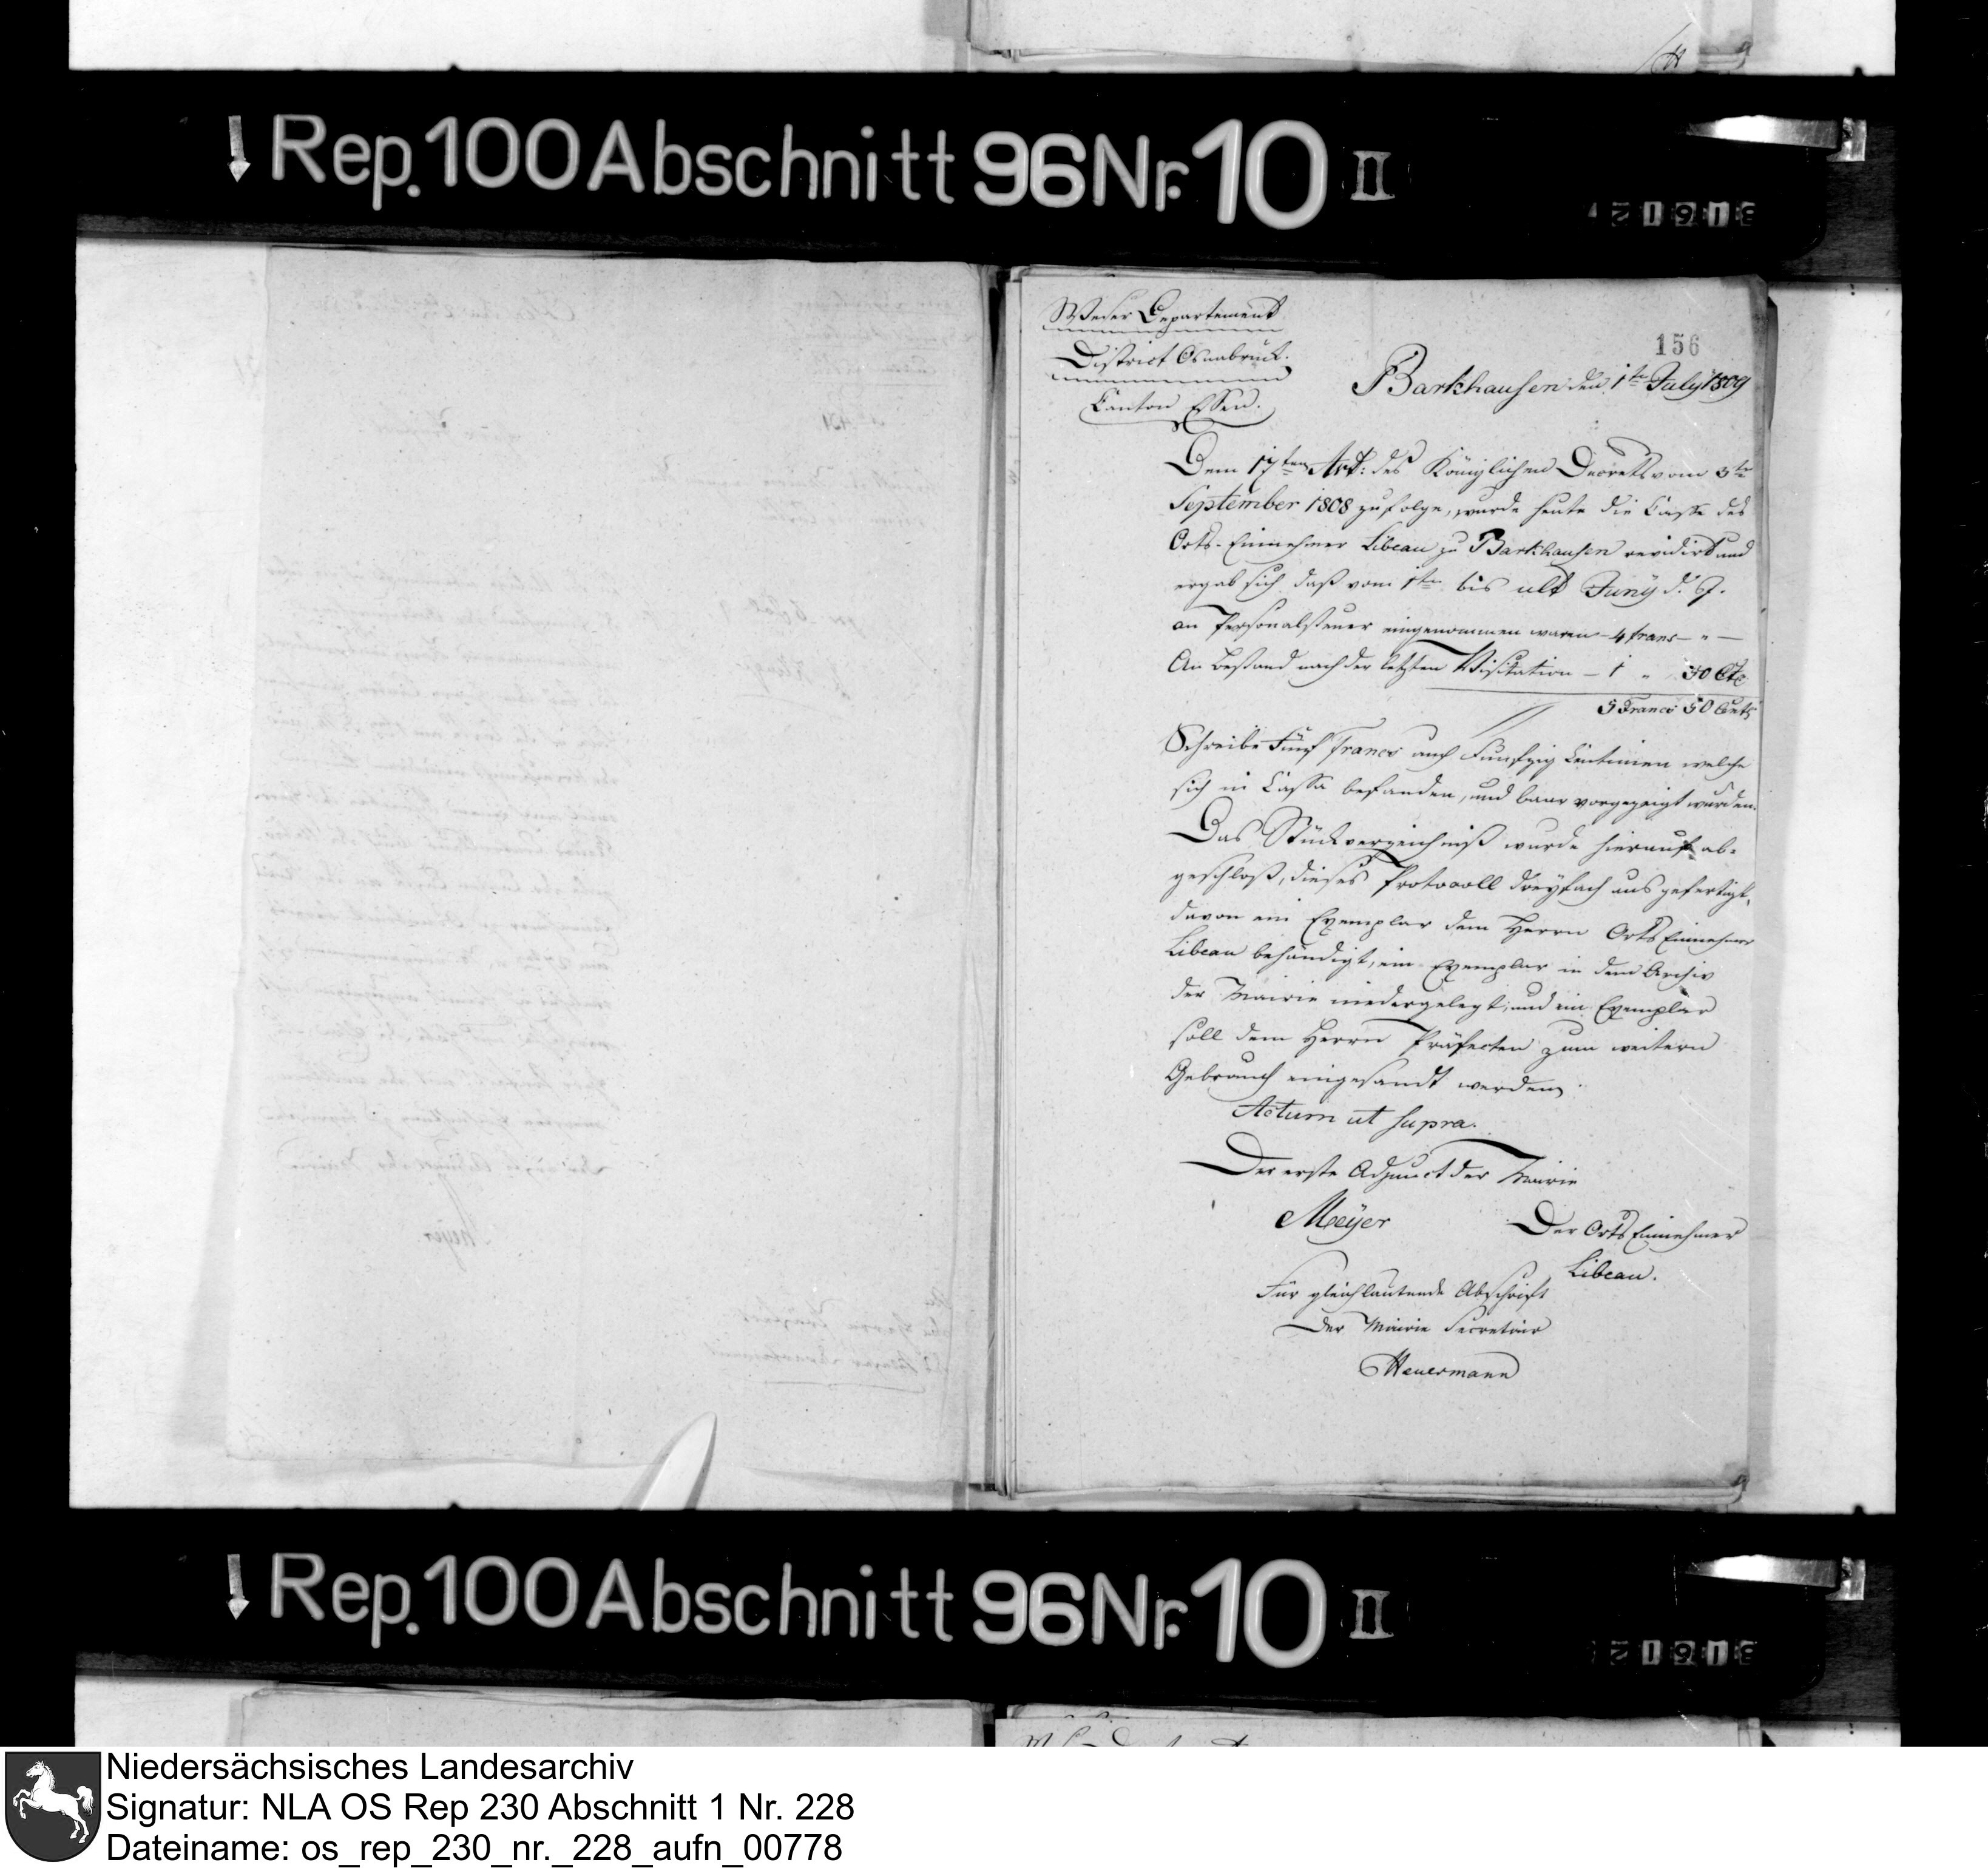 Rep. 100 Abschnitt 96 Nr. 10 II
Weser Departement
District Osnabrück.
Canton Essen.
156
Barkhausen den 1ten July 1809
Dem 17ten Art: des Königlichen Decrets vom 3ten
September 1808 zufolge, wurde heute die Casse des
Orts-Einnehmer Libeau zu Barkhausen revidirt und
ergab sich daß vom 1ten bis ult Juny d. J.
an Personalsteuer eingenommen waren – 4 franc – " –
An Bestand nach der letzten Visitation – 1 " 50 Cts
5 Francs 50 Cents
Schreibe Fünf Francs auch Funfzig Centimen welche
sich in Cassa befanden, und baar vorgezeigt wurden.
Das Stückverzeichniß wurde hierauf ab-
geschloß, dieses Protocoll dreyfach ausgefertigt,
davon ein Exemplar dem Herrn Orts Einnehmer
Libeau behändigt, ein Exemplar in dem Archiv
der Mairie niedergelegt, und ein Exemplar
soll dem Herrn Präfecten zum weitern
Gebrauch eingesandt werden.
Actum ut supra.
Der erste Adjunct der Mairie
Meÿer
Der Orts Einnehmer
Libeau.
Für gleichlautende Abschrift
Der Mairie Secretair
Heuermann
Rep. 100 Abschnitt 96 Nr. 10 II
Niedersächsisches Landesarchiv
Signatur: NLA OS Rep 230 Abschnitt 1 Nr. 228
Dateiname: os_rep_230_nr._228_aufn_00778